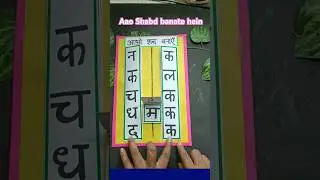 Aao Shabd banate hein
आओ शब्द बनाएँ
न क
क ल
च म क
ध क
द क